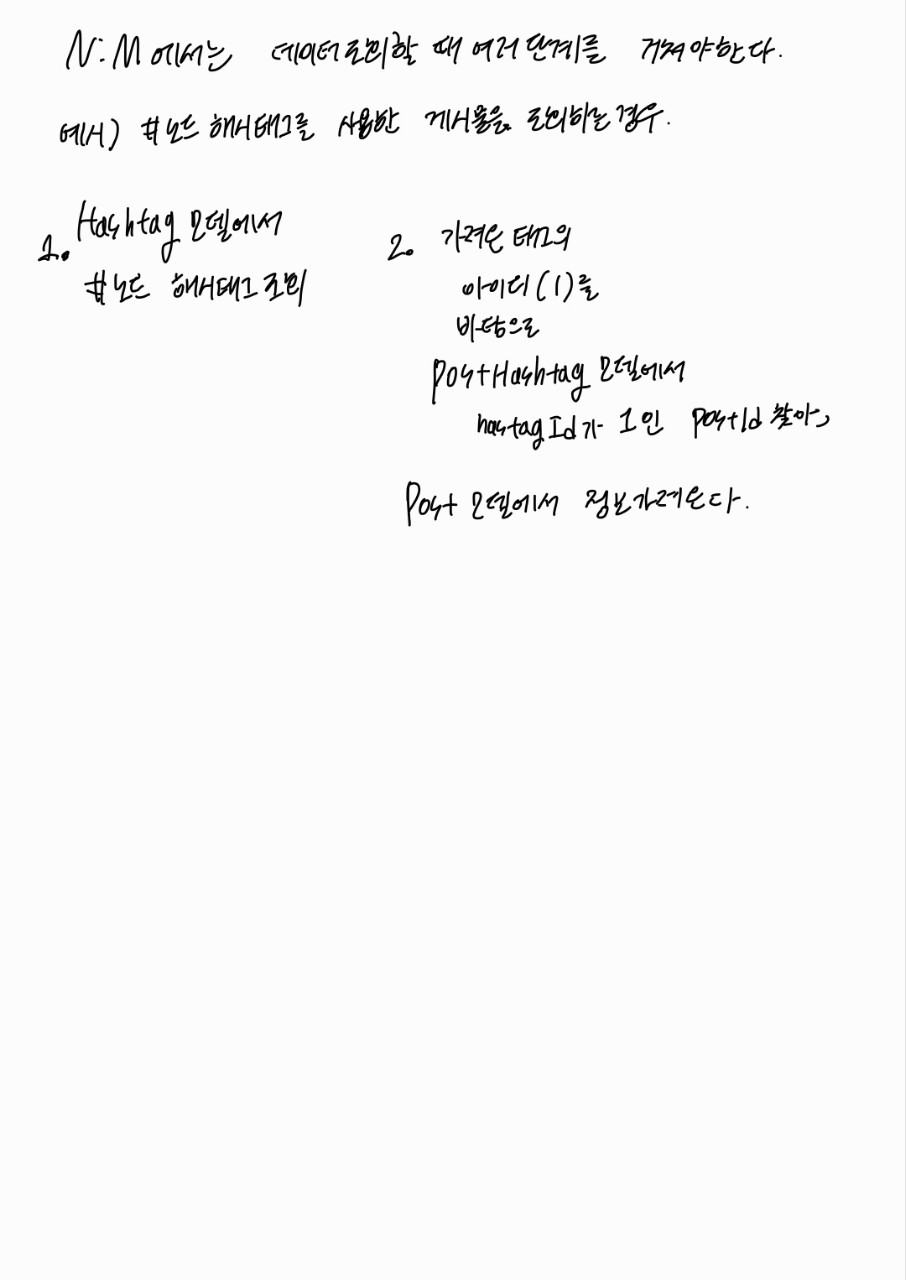 N:M에서는 데이터조회할 때 여러단계를 거쳐야한다.
예시) #노드 해시태그를 사용한 게시물을 조회하는경우.
1. Hashtag 모델에서
#노드 해시태그 조회
2. 가져온 태그의
아이디(1)를
바탕으로
PostHashtag 모델에서
hastagId가 1인 postId 찾아,
Post 모델에서 정보가져온다.